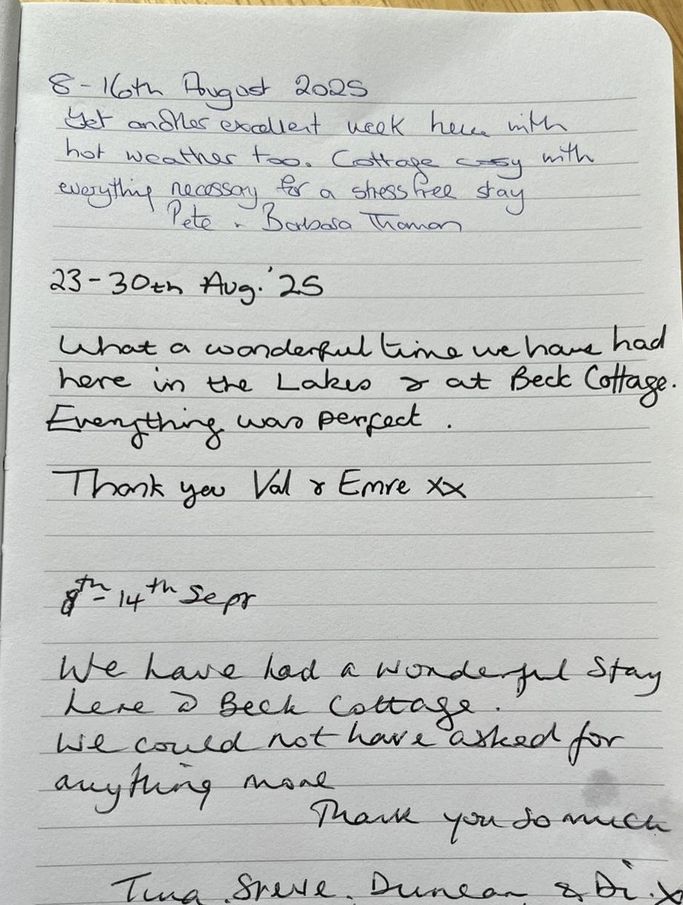 8-16th August 2025
Yet another excellent week here with
hot weather too. Cottage cosy with
everything necessary for a stress free stay
Pete . Barbara
23-30th Aug. '25
What a wonderful time we have had
here in the Lakes & at Beck Cottage.
Everything was perfect .
Thank you Val & Emre xx
8th - 14th Sept
We have had a wonderful stay
here @ Beck Cottage.
We could not have asked for
anything more
Thank you so much
Tina . Steve . Duncan & Di . x